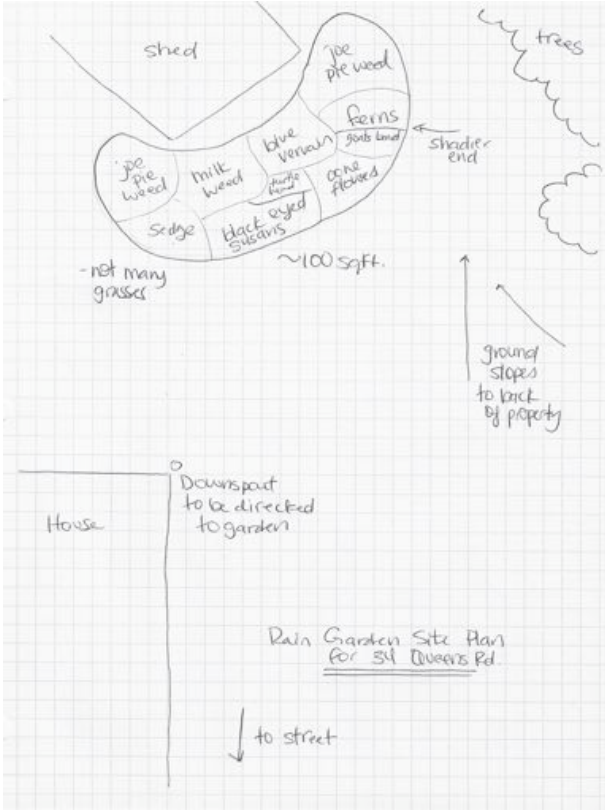 shed
trees
joe
pie weed
ferns
goats beard
shadier
end
blue
vervain
milk
weed
joe
pie
weed
turtle
head
cone
flowers
sedge
black eyed
susans
~100 sqft.
-not many
grasses
ground
slopes
to back
of property
Downspout
to be directed
to garden
House
Rain Garden Site Plan
for 34 Queens Rd.
to street